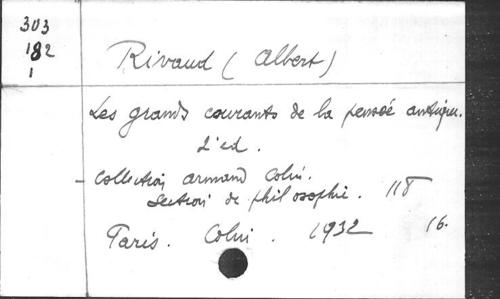 303
182
1
Rivaud (Albert)
Les grands courants de la pensée antique.
2'ed.
- Collection Armand Colin.
Section de philosophie. 118
Paris. Colin. 1932 16.